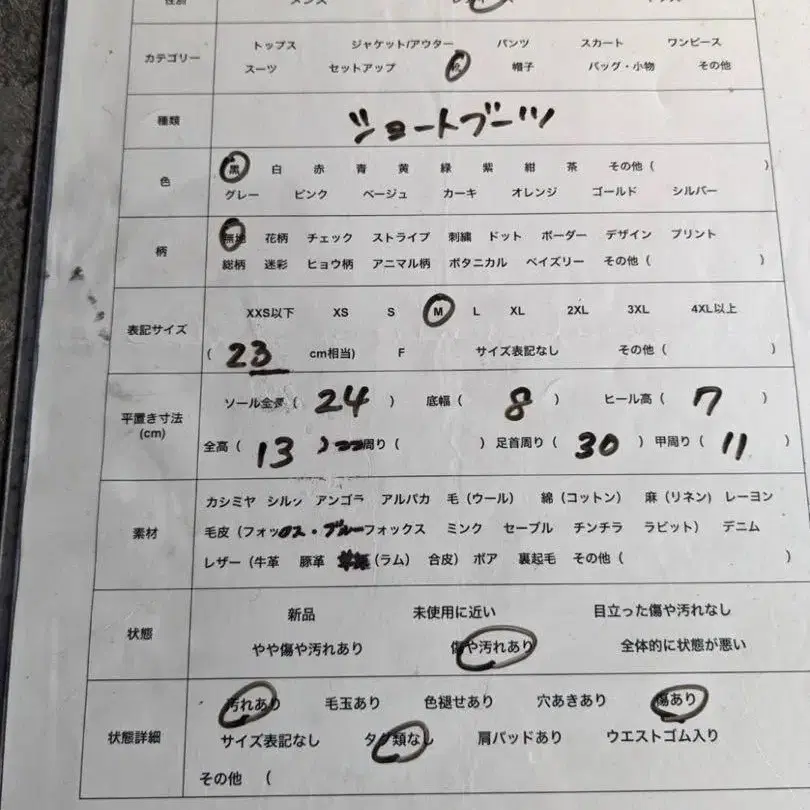 性別 メンズ
カテゴリー トップス ジャケット/アウター パンツ スカート ワンピース
スーツ セットアップ 靴 帽子 バッグ・小物 その他
種類 ショートブーツ
色 黒 白 赤 青 黄 緑 紫 紺 茶 その他 ( )
グレー ピンク ベージュ カーキ オレンジ ゴールド シルバー
柄 無地 花柄 チェック ストライプ 刺繍 ドット ボーダー デザイン プリント
総柄 迷彩 ヒョウ柄 アニマル柄 ボタニカル ペイズリー その他 ( )
表記サイズ XXS以下 XS S M L XL 2XL 3XL 4XL以上
( 23 cm相当) F サイズ表記なし その他 ( )
平置き寸法 (cm) ソール全長 ( 24 ) 底幅 ( 8 ) ヒール高 ( 7 )
全高 ( 13 ) 周り ( ) 足首周り ( 30 ) 甲周り ( 11 )
素材 カシミヤ シルク アンゴラ アルパカ 毛 (ウール) 綿 (コットン) 麻 (リネン) レーヨン
毛皮 (フォックス・ブルーフォックス ミンク セーブル チンチラ ラビット) デニム
レザー (牛革 豚革 (ラム) 合皮) ボア 裏起毛 その他 (
状態 新品 未使用に近い 目立った傷や汚れなし
やや傷や汚れあり 傷や汚れあり 全体的に状態が悪い
状態詳細 汚れあり 毛玉あり 色褪せあり 穴あきあり 傷あり
サイズ表記なし タグ類なし 肩パッドあり ウエストゴム入り
その他 (